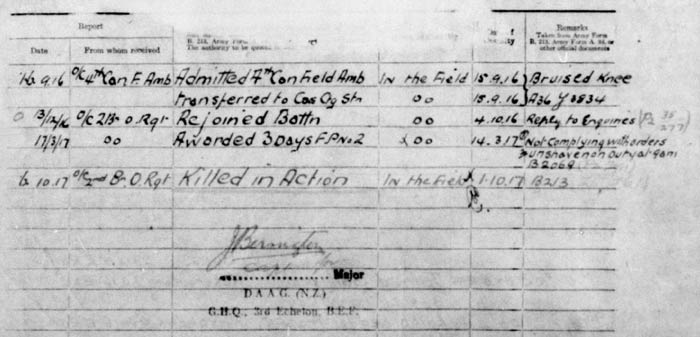 Report
Remarks
Taken from Army Form
B. 213, Army Form A. 36, or
other official documents
Date From whom received
The authority to be
16 9.16 O/C 4th Can F. Amb Admitted 4th Can Field Amb In the Field 15.9.16 Bruised Knee
transferred to Cas Clg Stn oo 15.9.16 A36 J 3834
13/12/16 O/C 2 Br O. Rgt Rejoined Battn oo 4.10.16 Reply to Enquiries
17/3/17 oo Awarded 3 Days F.P. No 2 oo 14.3.17 Not Complying with orders
unshaven on Duty at 9am
B2069
6 10.17 O/C 2nd Br. O. Rgt Killed in Action In the Field 1.10.17 B213
Major
D.A.A.G. (N.Z.)
G.H.Q., 3rd Echelon, B.E.F.